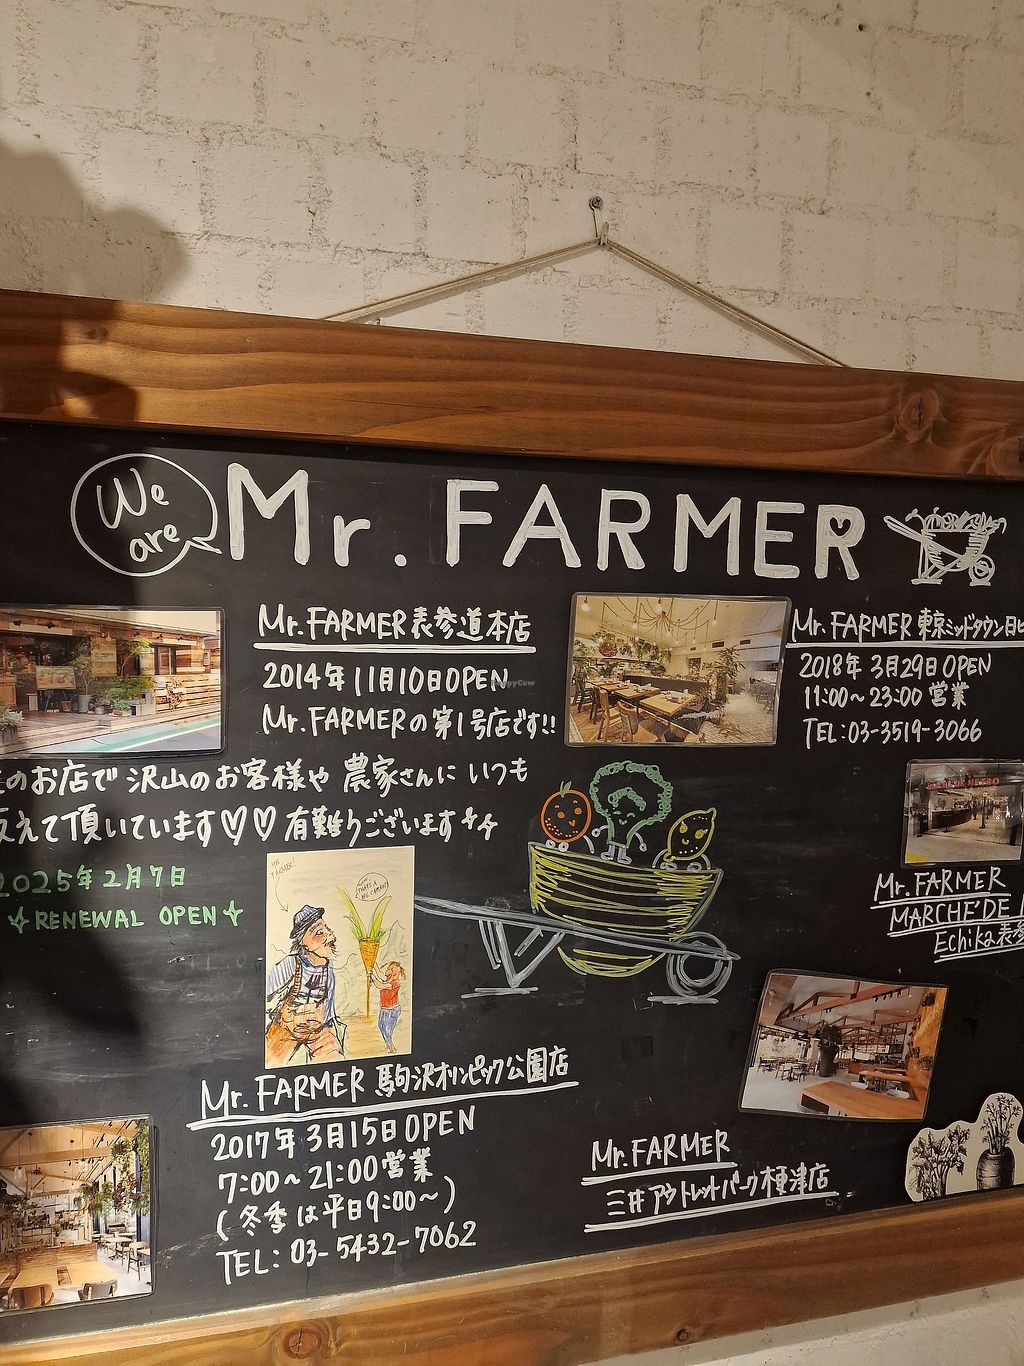 We are
Mr. FARMER
Mr. FARMER 表参道本店
2014年 11月10日OPEN
Mr. FARMERの第1号店です!!
のお店で 沢山のお客様や 農家さんに いつも
えて頂いています♡♡ 有難うございます
2025年2月7日
RENEWAL OPEN
Mr. FARMER 東京ミッドタウン日
2018年 3月29日OPEN
11:00〜23:00 営業
TEL:03-3519-3066
Mr. FARMER
MARCHE'DE
Echika表
MR. FARMER!
Mr. FARMER 駒沢オリンピック公園店
2017年 3月15日OPEN
7:00〜21:00営業
(冬季は平日9:00〜)
TEL: 03-5432-7062
Mr. FARMER
三井アウトレットパーク木更津店
HappyCow